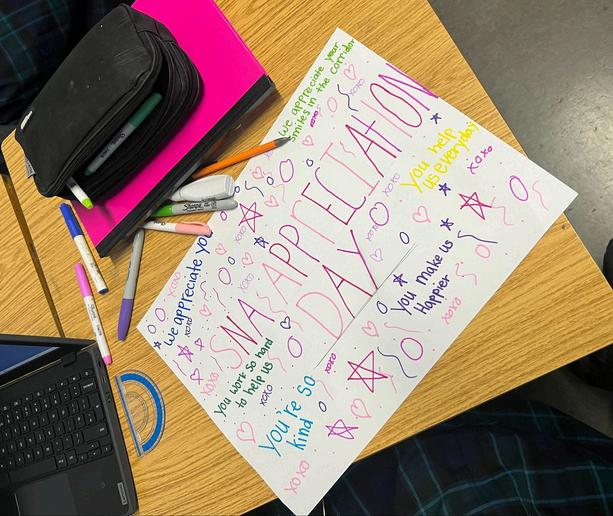 We appreciate your
smiles in the corridor
SNA APPRECIATION
DAY
You help
us everyday!
We appreciate you
You make us
Happier
You work so hard
to help us
You're so
kind
xoxo
xoxo
xoxo
xoxo
xoxo
xoxo
xoxo
xoxo
xoxo
xoxo
xoxo
xoxo
Sharpie